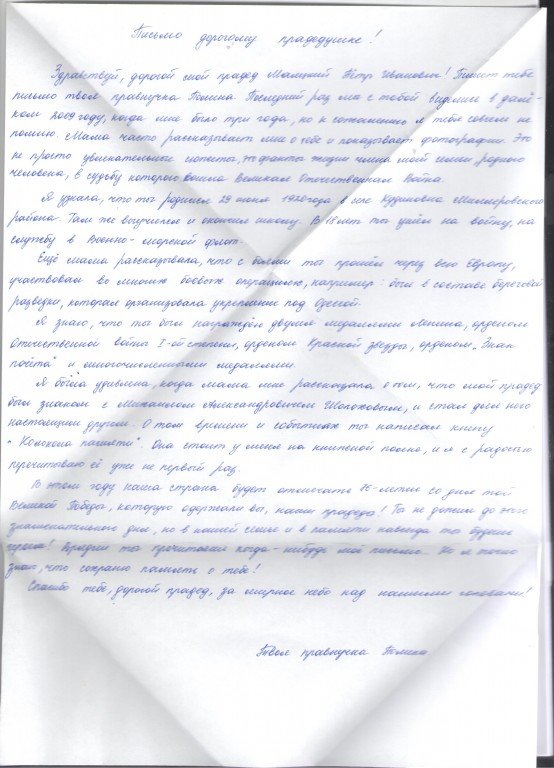 Письмо дорогому прадедушке!
Здравствуй, дорогой мой прадед Малицкий Пётр Иванович! Пишет тебе
письмо твоя правнучка Полина. Последний раз мы с тобой виделись в далё-
ком 2009 году, когда мне было три года, но к сожалению я тебя совсем не
помню. Мама часто рассказывает мне о тебе и показывает фотографии. Это
не просто увлекательные сюжеты, это факты жизни члена моей семьи, родного
человека, в судьбу которого вошла Великая Отечественная Война.
Я узнала, что ты родился 29 июня 1920 года в селе Кудиновка Миллеровского
района. Там же выучился и окончил школу. В 18 лет ты ушёл на войну, на
службу в Военно-морской флот.
Ещё мама рассказывала, что с боями ты прошёл через всю Европу,
участвовал во многих боевых операциях, например: был в составе береговой
разведки, которая организовала укрепление под Одессой.
Я знаю, что ты был награждён двумя медалями Ленина, орденом
Отечественной войны I-ой степени, орденом Красной звезды, орденом „Знак
почёта" и многочисленными медалями.
Я была удивлена, когда мама мне рассказала о том, что мой прадед
был знаком с Михаилом Александровичем Шолоховым, и стал для него
настоящим другом. О том времени и событиях ты написал книгу
"Колокола памяти". Она стоит у меня на книжной полке, и я с радостью
перечитываю её уже не первый раз.
В этом году наша страна будет отмечать 75-летие со дня той
Великой Победы, которую одержали вы, наши прадеды! Ты не дожил до этого
знаменательного дня, но в нашей семье и в памяти навсегда ты будешь
героем! Врядли ты прочитаешь когда-нибудь моё письмо... Но я точно
знаю, что сохраню память о тебе!
Спасибо тебе, дорогой прадед, за мирное небо над нашими головами!
Твоя правнучка Полина